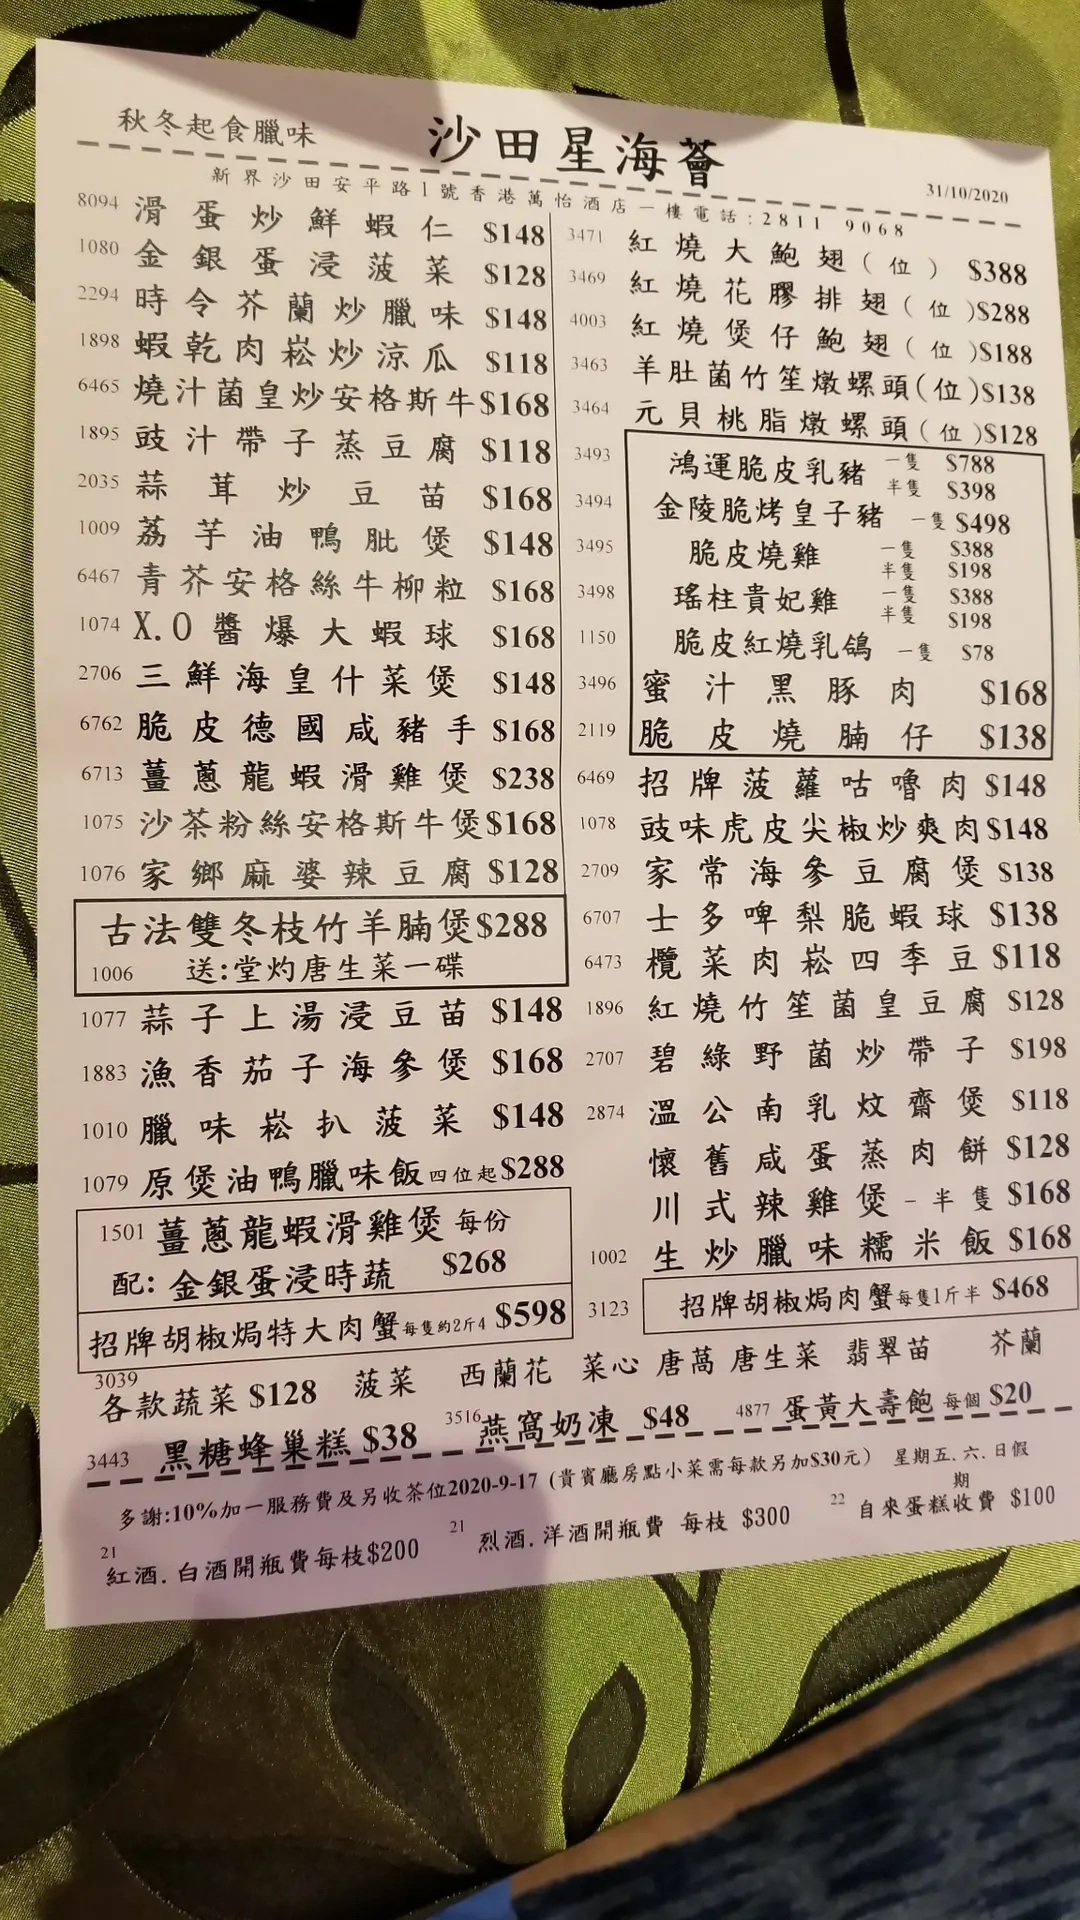 秋冬起食臘味
沙田星海薈
31/10/2020
新界沙田安平路1號香港萬怡酒店一樓電話:2811 9068
8094 滑蛋炒鮮蝦仁 $148
1080 金銀蛋浸菠菜 $128
2294 時令芥蘭炒臘味 $148
1898 蝦乾肉崧炒涼瓜 $118
6465 燒汁菌皇炒安格斯牛 $168
1895 豉汁帶子蒸豆腐 $118
2035 蒜茸炒豆苗 $168
1009 荔芋油鴨肶煲 $148
6467 青芥安格絲牛柳粒 $168
1074 X.O醬爆大蝦球 $168
2706 三鮮海皇什菜煲 $148
6762 脆皮德國咸豬手 $168
6713 薑蔥龍蝦滑雞煲 $238
1075 沙茶粉絲安格斯牛煲 $168
1076 家鄉麻婆辣豆腐 $128
古法雙冬枝竹羊腩煲 $288
1006 送:堂灼唐生菜一碟
1077 蒜子上湯浸豆苗 $148
1883 漁香茄子海參煲 $168
1010 臘味崧扒菠菜 $148
1079 原煲油鴨臘味飯 四位起 $288
1501 薑蔥龍蝦滑雞煲 每份
配: 金銀蛋浸時蔬 $268
招牌胡椒焗特大肉蟹 每隻約2斤4 $598
3471 紅燒大鮑翅(位) $388
3469 紅燒花膠排翅(位) $288
4003 紅燒煲仔鮑翅(位) $188
3463 羊肚菌竹笙燉螺頭(位) $138
3464 元貝桃脂燉螺頭(位) $128
3493 鴻運脆皮乳豬 一隻 $788
半隻 $398
3494 金陵脆烤皇子豬 一隻 $498
3495 脆皮燒雞 一隻 $388
半隻 $198
3498 瑤柱貴妃雞 一隻 $388
半隻 $198
1150 脆皮紅燒乳鴿 一隻 $78
3496 蜜汁黑豚肉 $168
2119 脆皮燒腩仔 $138
6469 招牌菠蘿咕嚕肉 $148
1078 豉味虎皮尖椒炒爽肉 $148
2709 家常海參豆腐煲 $138
6707 士多啤梨脆蝦球 $138
6473 欖菜肉崧四季豆 $118
1896 紅燒竹笙菌皇豆腐 $128
2707 碧綠野菌炒帶子 $198
2874 溫公南乳炆齋煲 $118
懷舊咸蛋蒸肉餅 $128
川式辣雞煲 - 半隻 $168
1002 生炒臘味糯米飯 $168
3123 招牌胡椒焗肉蟹 每隻1斤半 $468
3039 各款蔬菜 $128 菠菜 西蘭花 菜心 唐萵 唐生菜 翡翠苗 芥蘭
3443 黑糖蜂巢糕 $38 3516 燕窩奶凍 $48 4877 蛋黃大壽飽 每個 $20
多謝:10%加一服務費及另收茶位2020-9-17 (貴賓廳房點小菜需每款另加$30元) 星期五.六.日假期
21 紅酒.白酒開瓶費每枝$200 21 烈酒.洋酒開瓶費 每枝 $300 22 自來蛋糕收費 $100